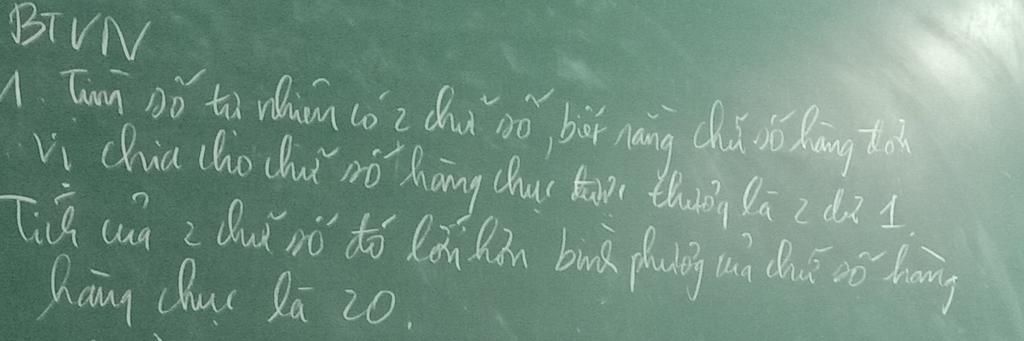 BTVN
1. Tìm số tự nhiên có 2 chữ số, biết rằng chữ số hàng đơn
vị chia cho chữ số hàng chục được thương là 2 dư 1.
Tích của 2 chữ số đó lớn hơn bình phương của chữ số hàng
hàng chục là 20.